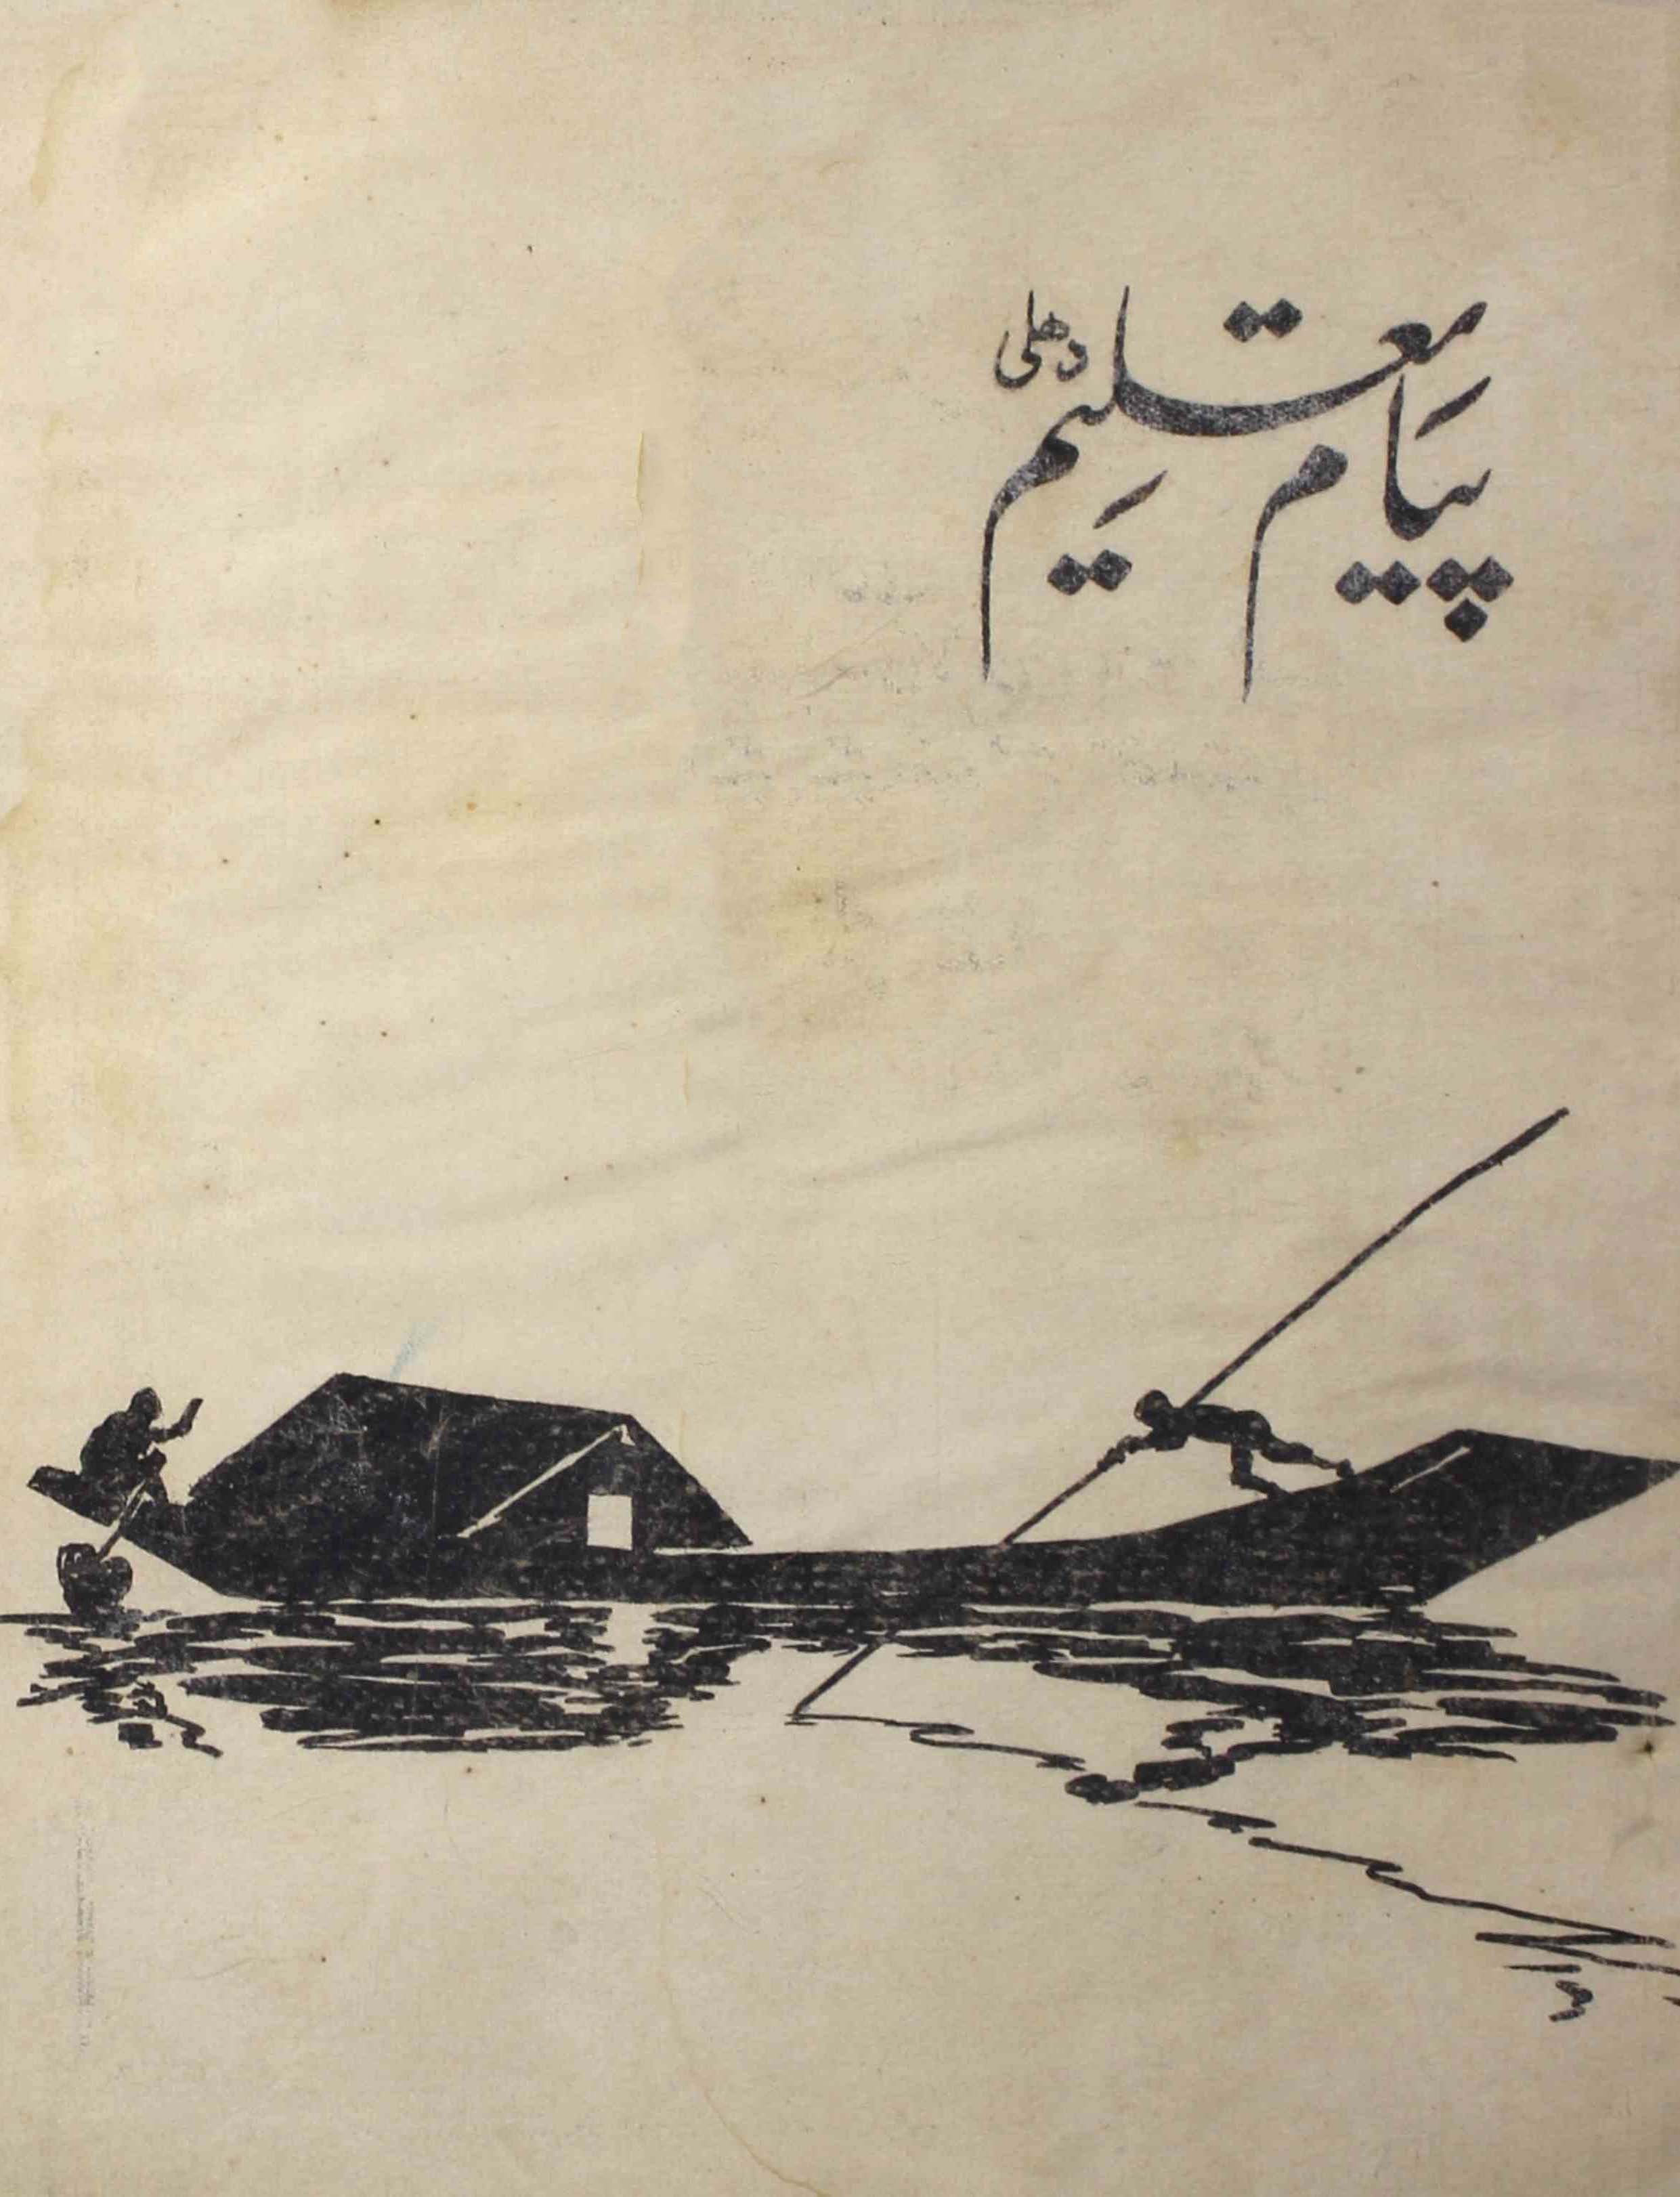 پیام تعلیم
دھلی